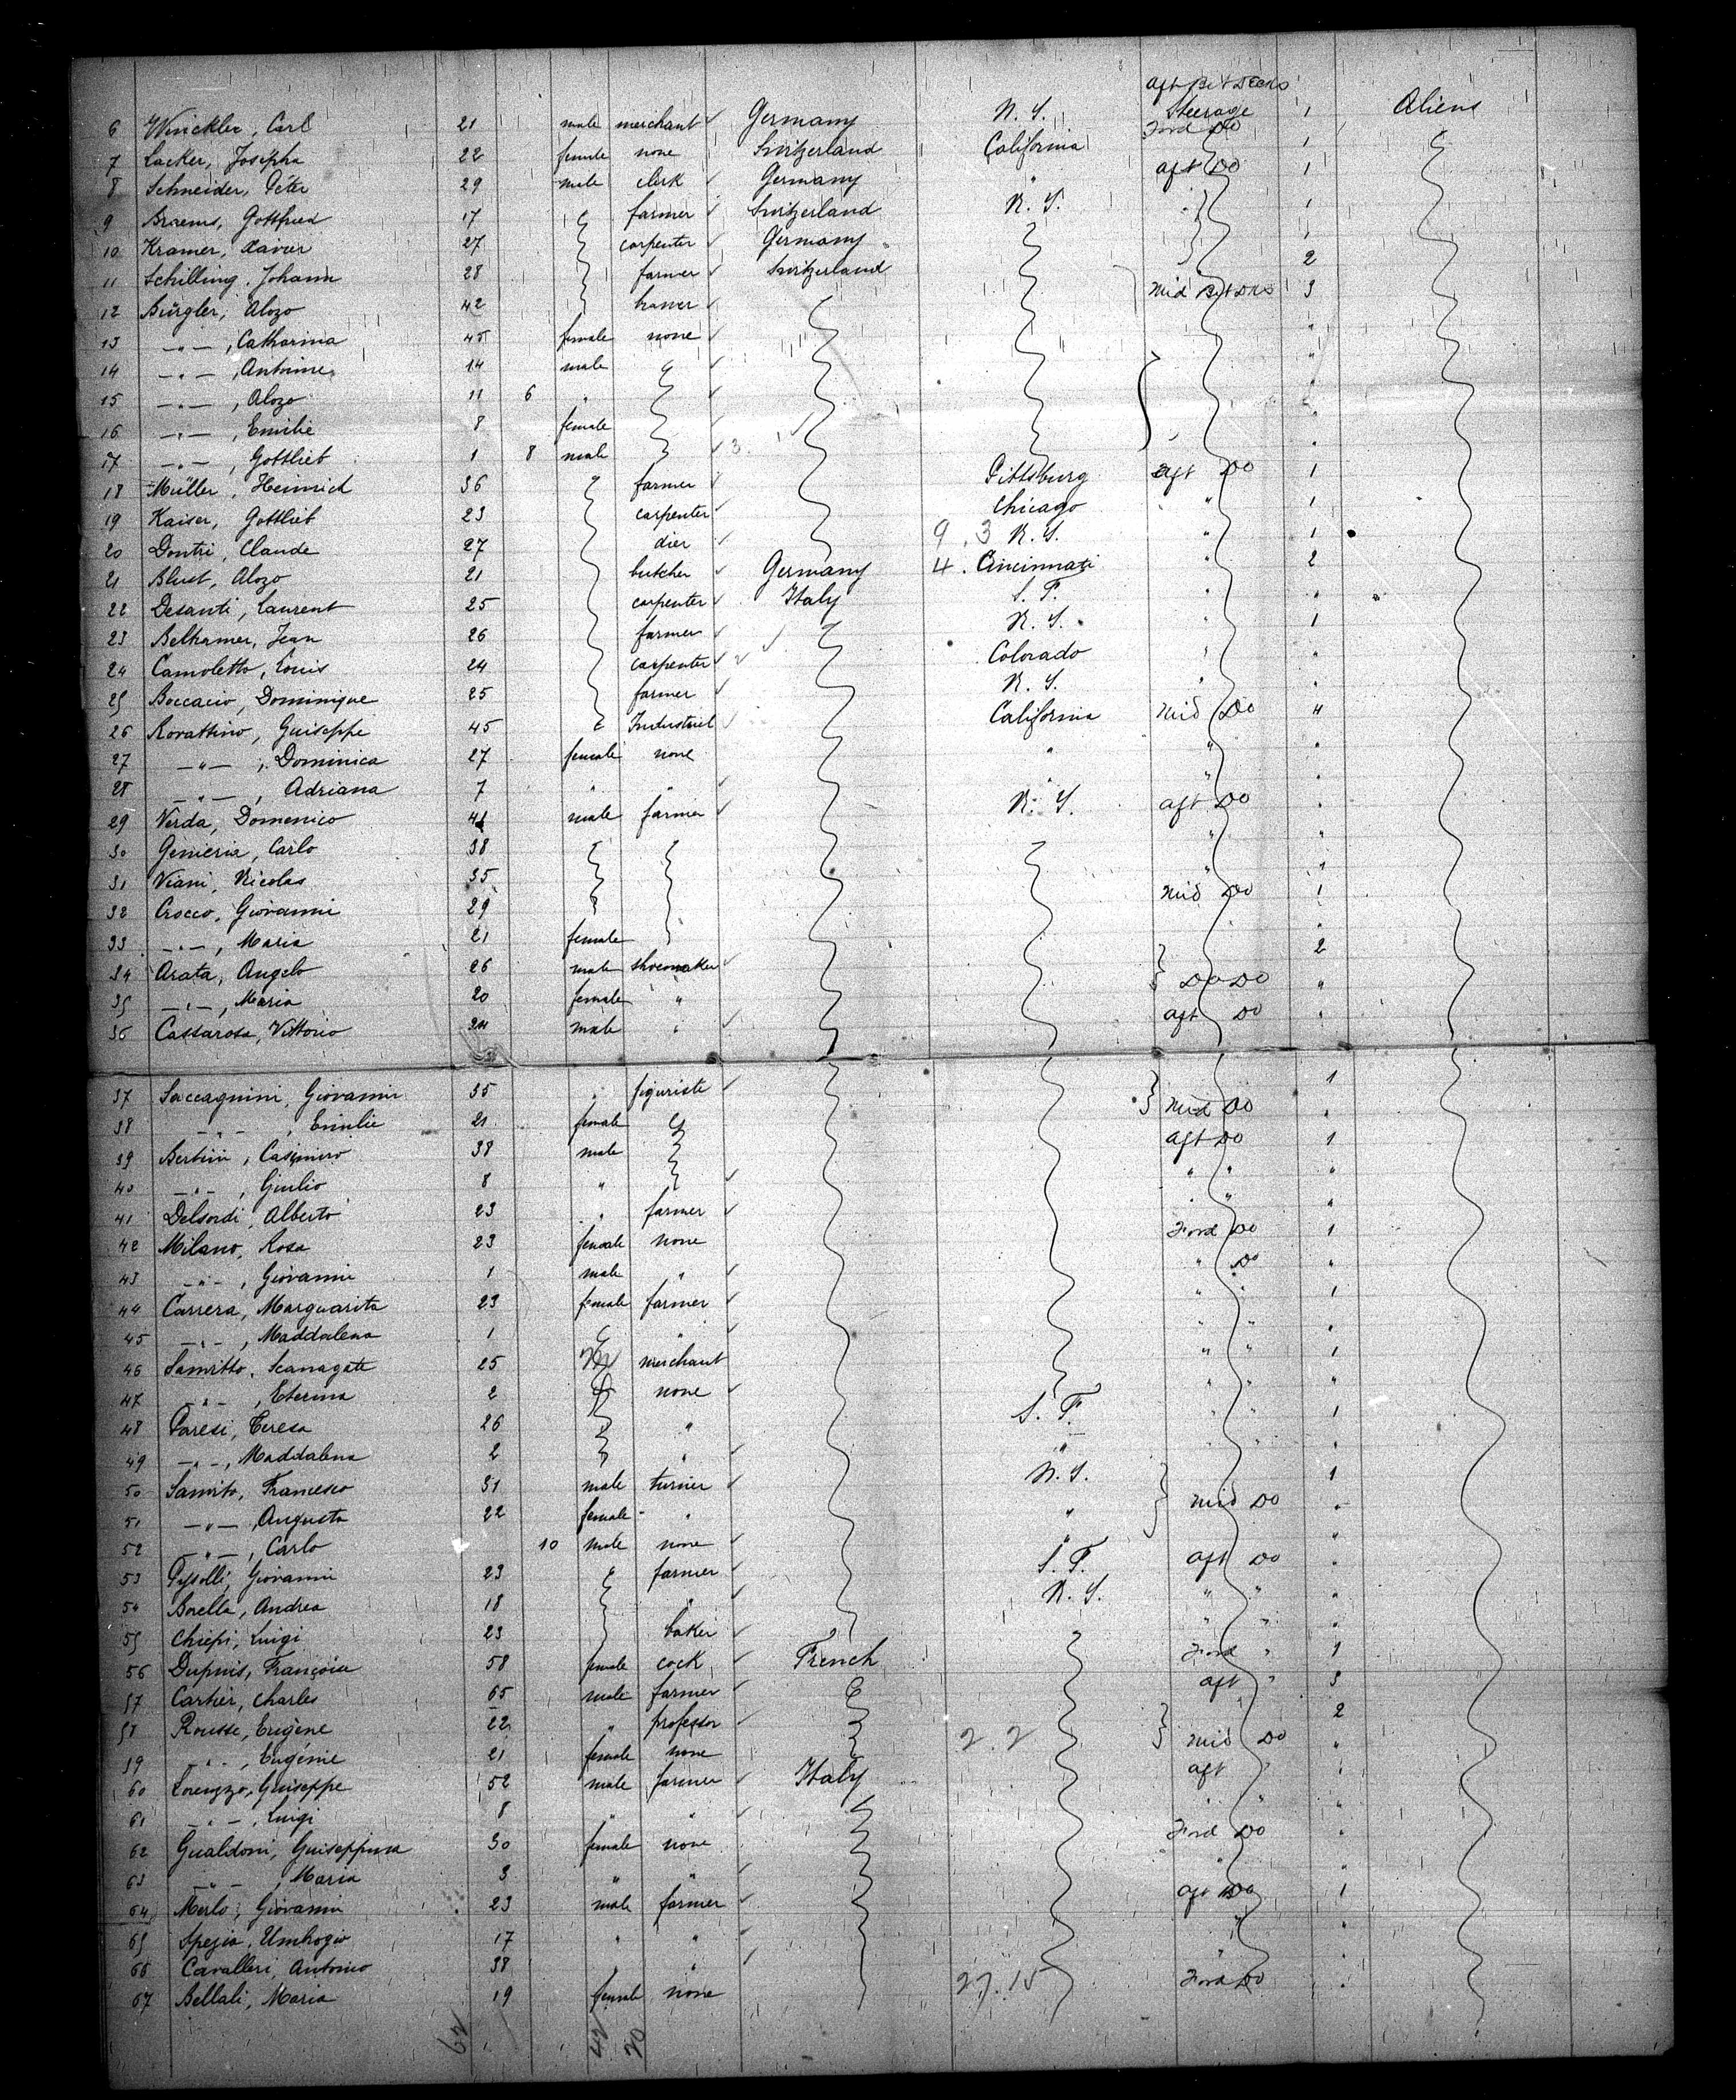 aft Bet Decks
6 Winckler, Carl 21 male merchant Germany N. Y. Steerage 1 Aliens
7 Lacker, Josepha 22 female none Switzerland California Ford Do 1
8 Schneider, Peter 29 male clerk Germany " aft Do 1
9 Braems, Gottfried 17 farmer Switzerland N. Y. " 1
10 Kramer, Xavier 27 carpenter Germany 1
11 Schilling, Johann 28 farmer Switzerland 2
12 Bürgler, Alozo 42 Mid Bet Dks 3
13 -"-, Catharina 45 female none "
14 -"-, Antoine 14 male "
15 -"-, Alozo 11 6 " "
16 -"-, Emilie 8 female "
17 -"-, Gottlieb 1 8 male 3 "
18 Müller, Heinrich 36 farmer Pittsburg aft Do 1
19 Kaiser, Gottlieb 23 carpenter Chicago " 1
20 Dontri, Claude 27 dier 9.3 N. Y. " 1
21 Blust, Alozo 21 butcher Germany 4. Cincinnati " 2
22 Desanti, Laurent 25 carpenter Italy S. F. " "
23 Belkramer, Jean 26 farmer N. Y. " 1
24 Camoletto, Louis 24 carpenter Colorado " "
25 Boccacio, Dominique 25 farmer N. Y. " "
26 Rovattino, Guiseppi 45 Industriel California Mid Do 4
27 -"-, Dominica 27 female none " " "
28 -"-, Adriana 7 " " " " "
29 Verda, Domenico 41 male farmer N. Y. aft Do "
30 Genieria, Carlo 38 " "
31 Viani, Nicolas 35 " 1
32 Crocco, Giovanni 29 Mid Do 1
33 -"-, Maria 21 female "
34 Arata, Angelo 26 male shoemaker 2
35 -"-, Maria 20 female " Do Do "
36 Cassarosa, Vittorio 24 male " aft Do "
37 Saccagnini, Giovanni 35 " figuriste 1
38 -"-, Emilie 21 female Mid Do "
39 Bertini, Casimiro 38 male aft Do 1
40 -"-, Giulio 8 " " " "
41 Delsordi, Alberto 23 " farmer " " "
42 Milano, Rosa 23 female none Ford Do 1
43 -"-, Giovanni 1 male " " Do "
44 Carrera, Marguarita 23 female farmer " " 1
45 -"-, Maddalena 1 " " " "
46 Samitto, Scanagate 25 merchant " " 1
47 -"-, Eterina 2 none " " "
48 Paresi, Teresa 26 " S. F. " " 1
49 -"-, Maddalena 2 " " " " "
50 Samito, Francesco 31 male turner N. Y. 1
51 -"-, Augusta 22 female " " Mid Do "
52 -"-, Carlo 10 male none " "
53 Giovanni 23 farmer S. F. aft Do "
54 Borella, Andrea 18 " N. Y. " " "
55 Chiepi, Luigi 23 baker " " "
56 Dupuis, Françoise 58 female cock French Ford " 1
57 Cartier, Charles 65 male farmer aft " 3
58 Rousse, Eugène 22 " professor 2
59 -"-, Eugénie 21 female none 2.2 Mid Do "
60 Lorenzzo, Guiseppe 52 male farmer Italy aft " "
61 -"-, Luigi 8 " " " " "
62 Gualdoni, Guiseppina 30 female none Ford Do "
63 -"-, Maria 3 " " " "
64 Merlo, Giovanni 23 male farmer aft Do 1
65 Spezia, Umbrogio 17 " " " "
66 Cavalleri, Antonio 38 " " " "
67 Bellali, Maria 19 female none 27.15 Ford Do "
62 42 20